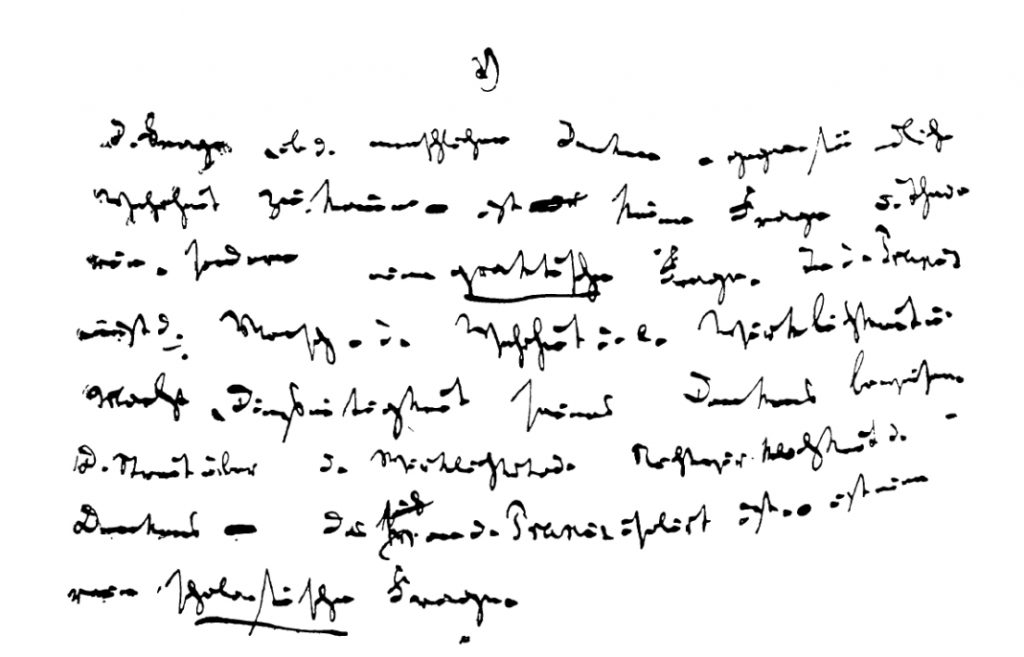 2)
D. Frage, ob d. menschlichen Denken gegenständliche
Wahrheit zukomme – ist keine Frage d. Theo-
rie, sondern eine praktische Frage. In d. Praxis
muß d. Mensch d. Wahrheit i. e. Wirklichkeit u.
Macht, Diesseitigkeit seines Denkens beweisen.
D. Streit über d. Wirklichkeit od. Nichtwirklichkeit d.
Denkens – das v. d. Praxis isolirt ist – ist eine
rein scholastische Frage.